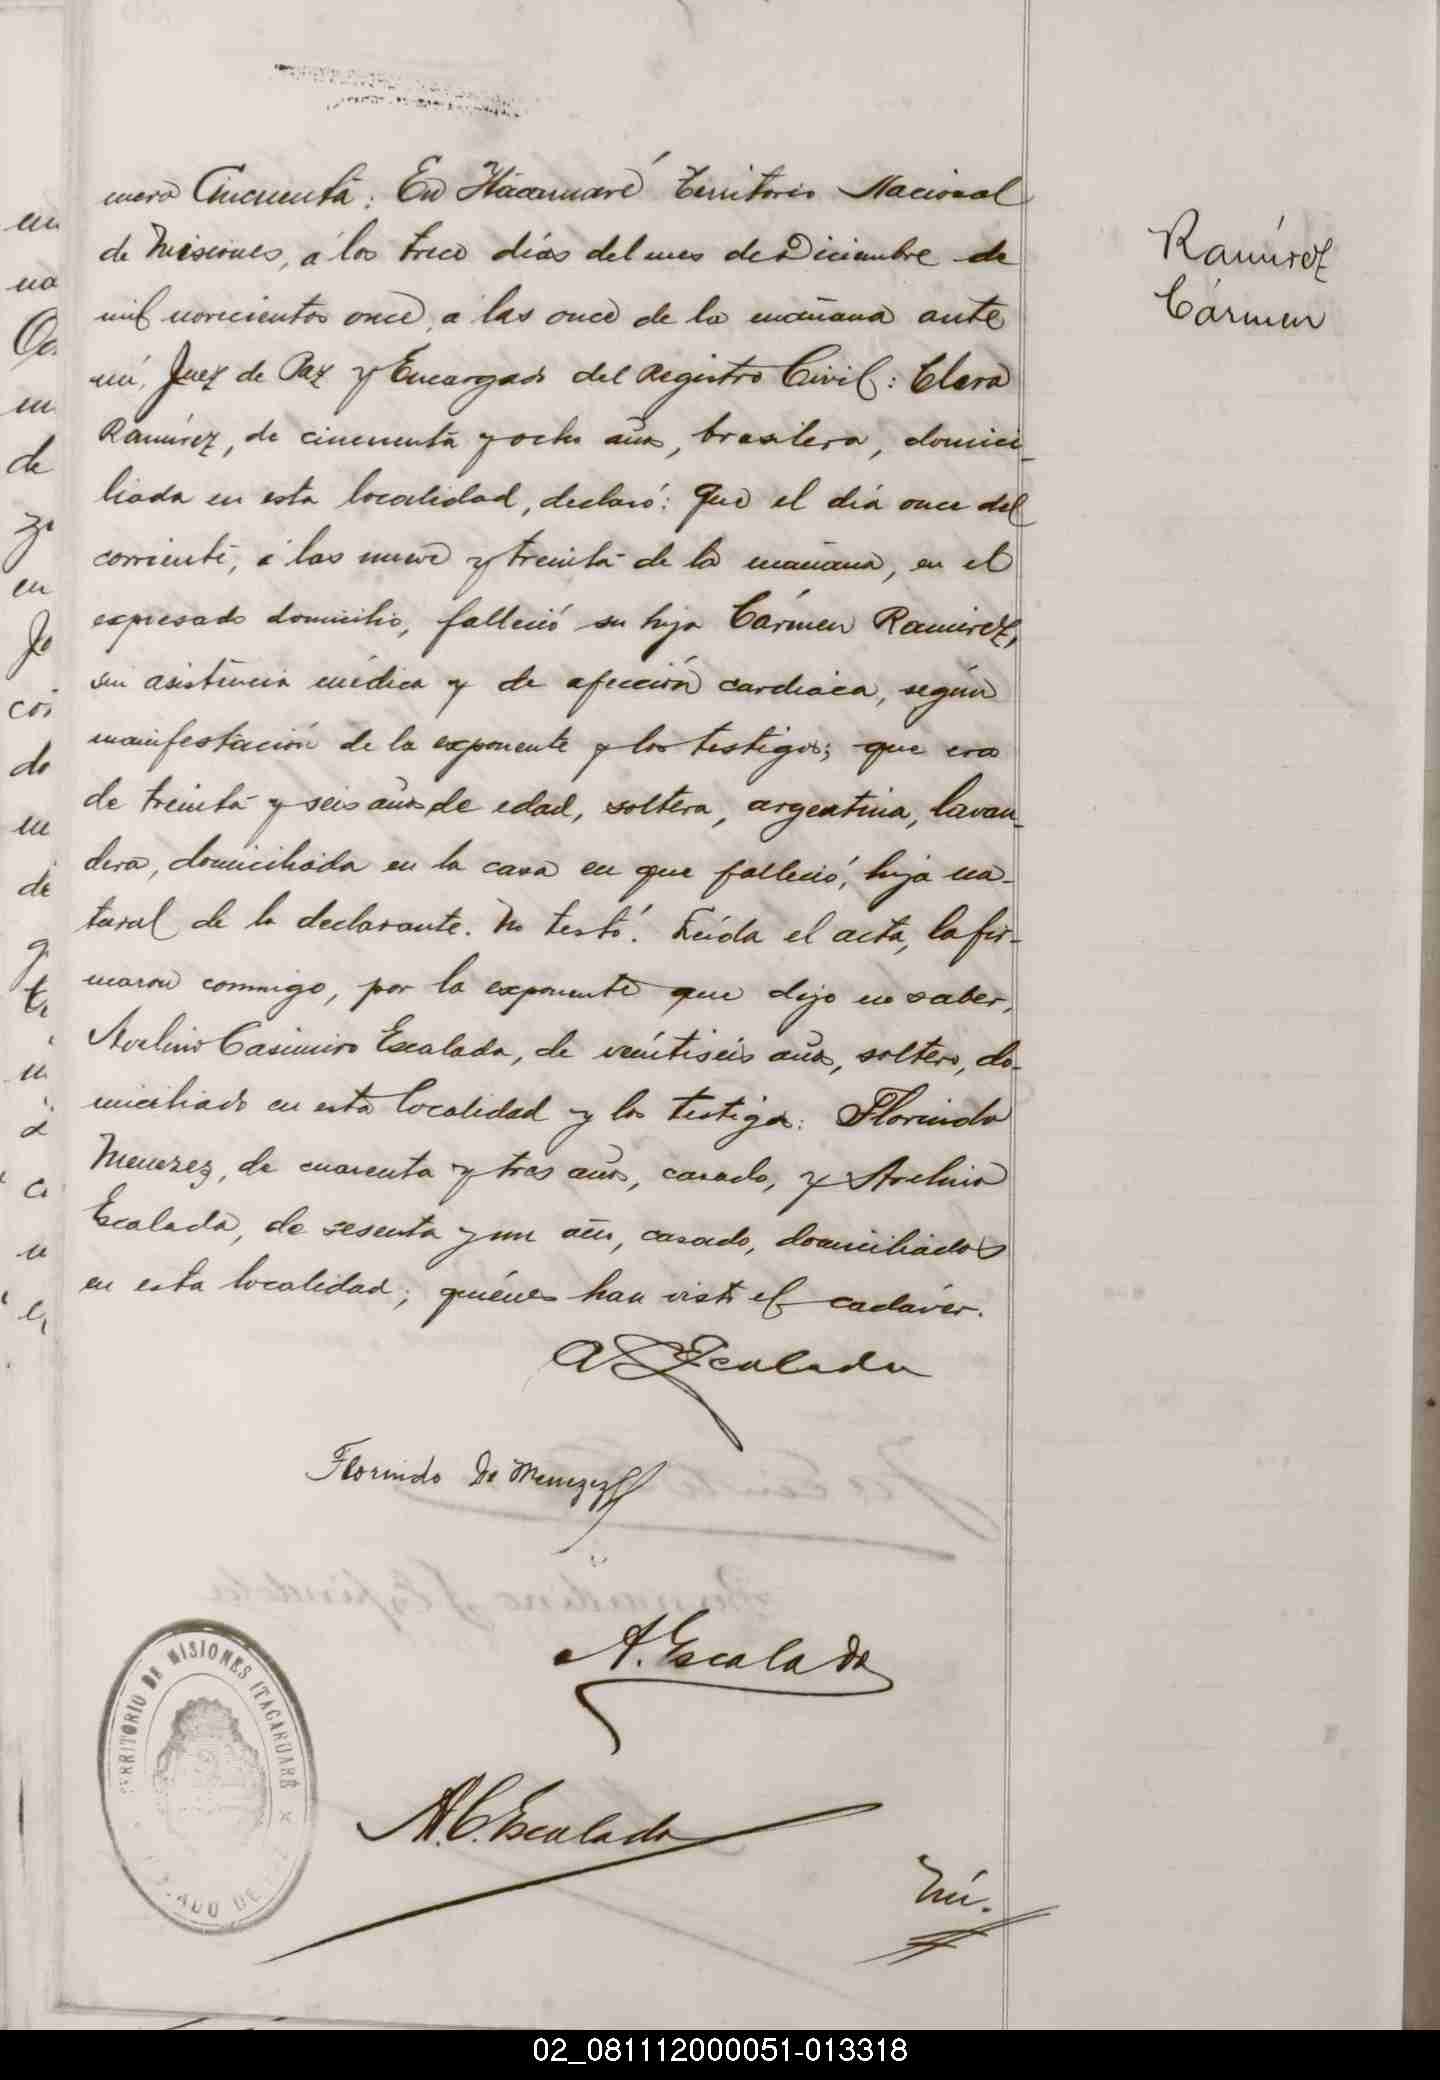 mero Cincuenta: En Itacaruaré Territorio Nacional
de Misiones, á los trece días del mes de Diciembre de
mil novecientos once, a las once de la mañana ante
mí, Juez de Paz y Encargado del Registro Civil: Clara
Ramírez, de cincuenta y ocho años, brasilera, domici-
liada en esta localidad, declaró: Que el día once del
corriente, á las nueve y treinta de la mañana, en el
expresado domicilio, falleció su hija Cármen Ramírez,
sin asistencia médica y de afección cardiaca, según
manifestación de la exponente y los testigos; que era
de treinta y seis años de edad, soltera, argentina, lavan-
dera, domiciliada en la casa en que falleció, hija na-
tural de la declarante. No testó. Leída el acta, la fir-
maron conmigo, por la exponente que dijo no saber,
Avelino Casimiro Escalada, de veintiseis años, soltero, do-
miciliado en esta localidad y los testigos: Florindo
Menezez, de cuarenta y tres años, casado, y Avelino
Escalada, de sesenta y un años, casado, domiciliados
en esta localidad; quiénes han visto el cadáver.
Ramírez
Cármen
Escalada
Florindo De Menezez
A. Escalada
A. C. Escalada
TERRITORIO DE MISIONES ITACARUARÉ
02_081112000051-013318